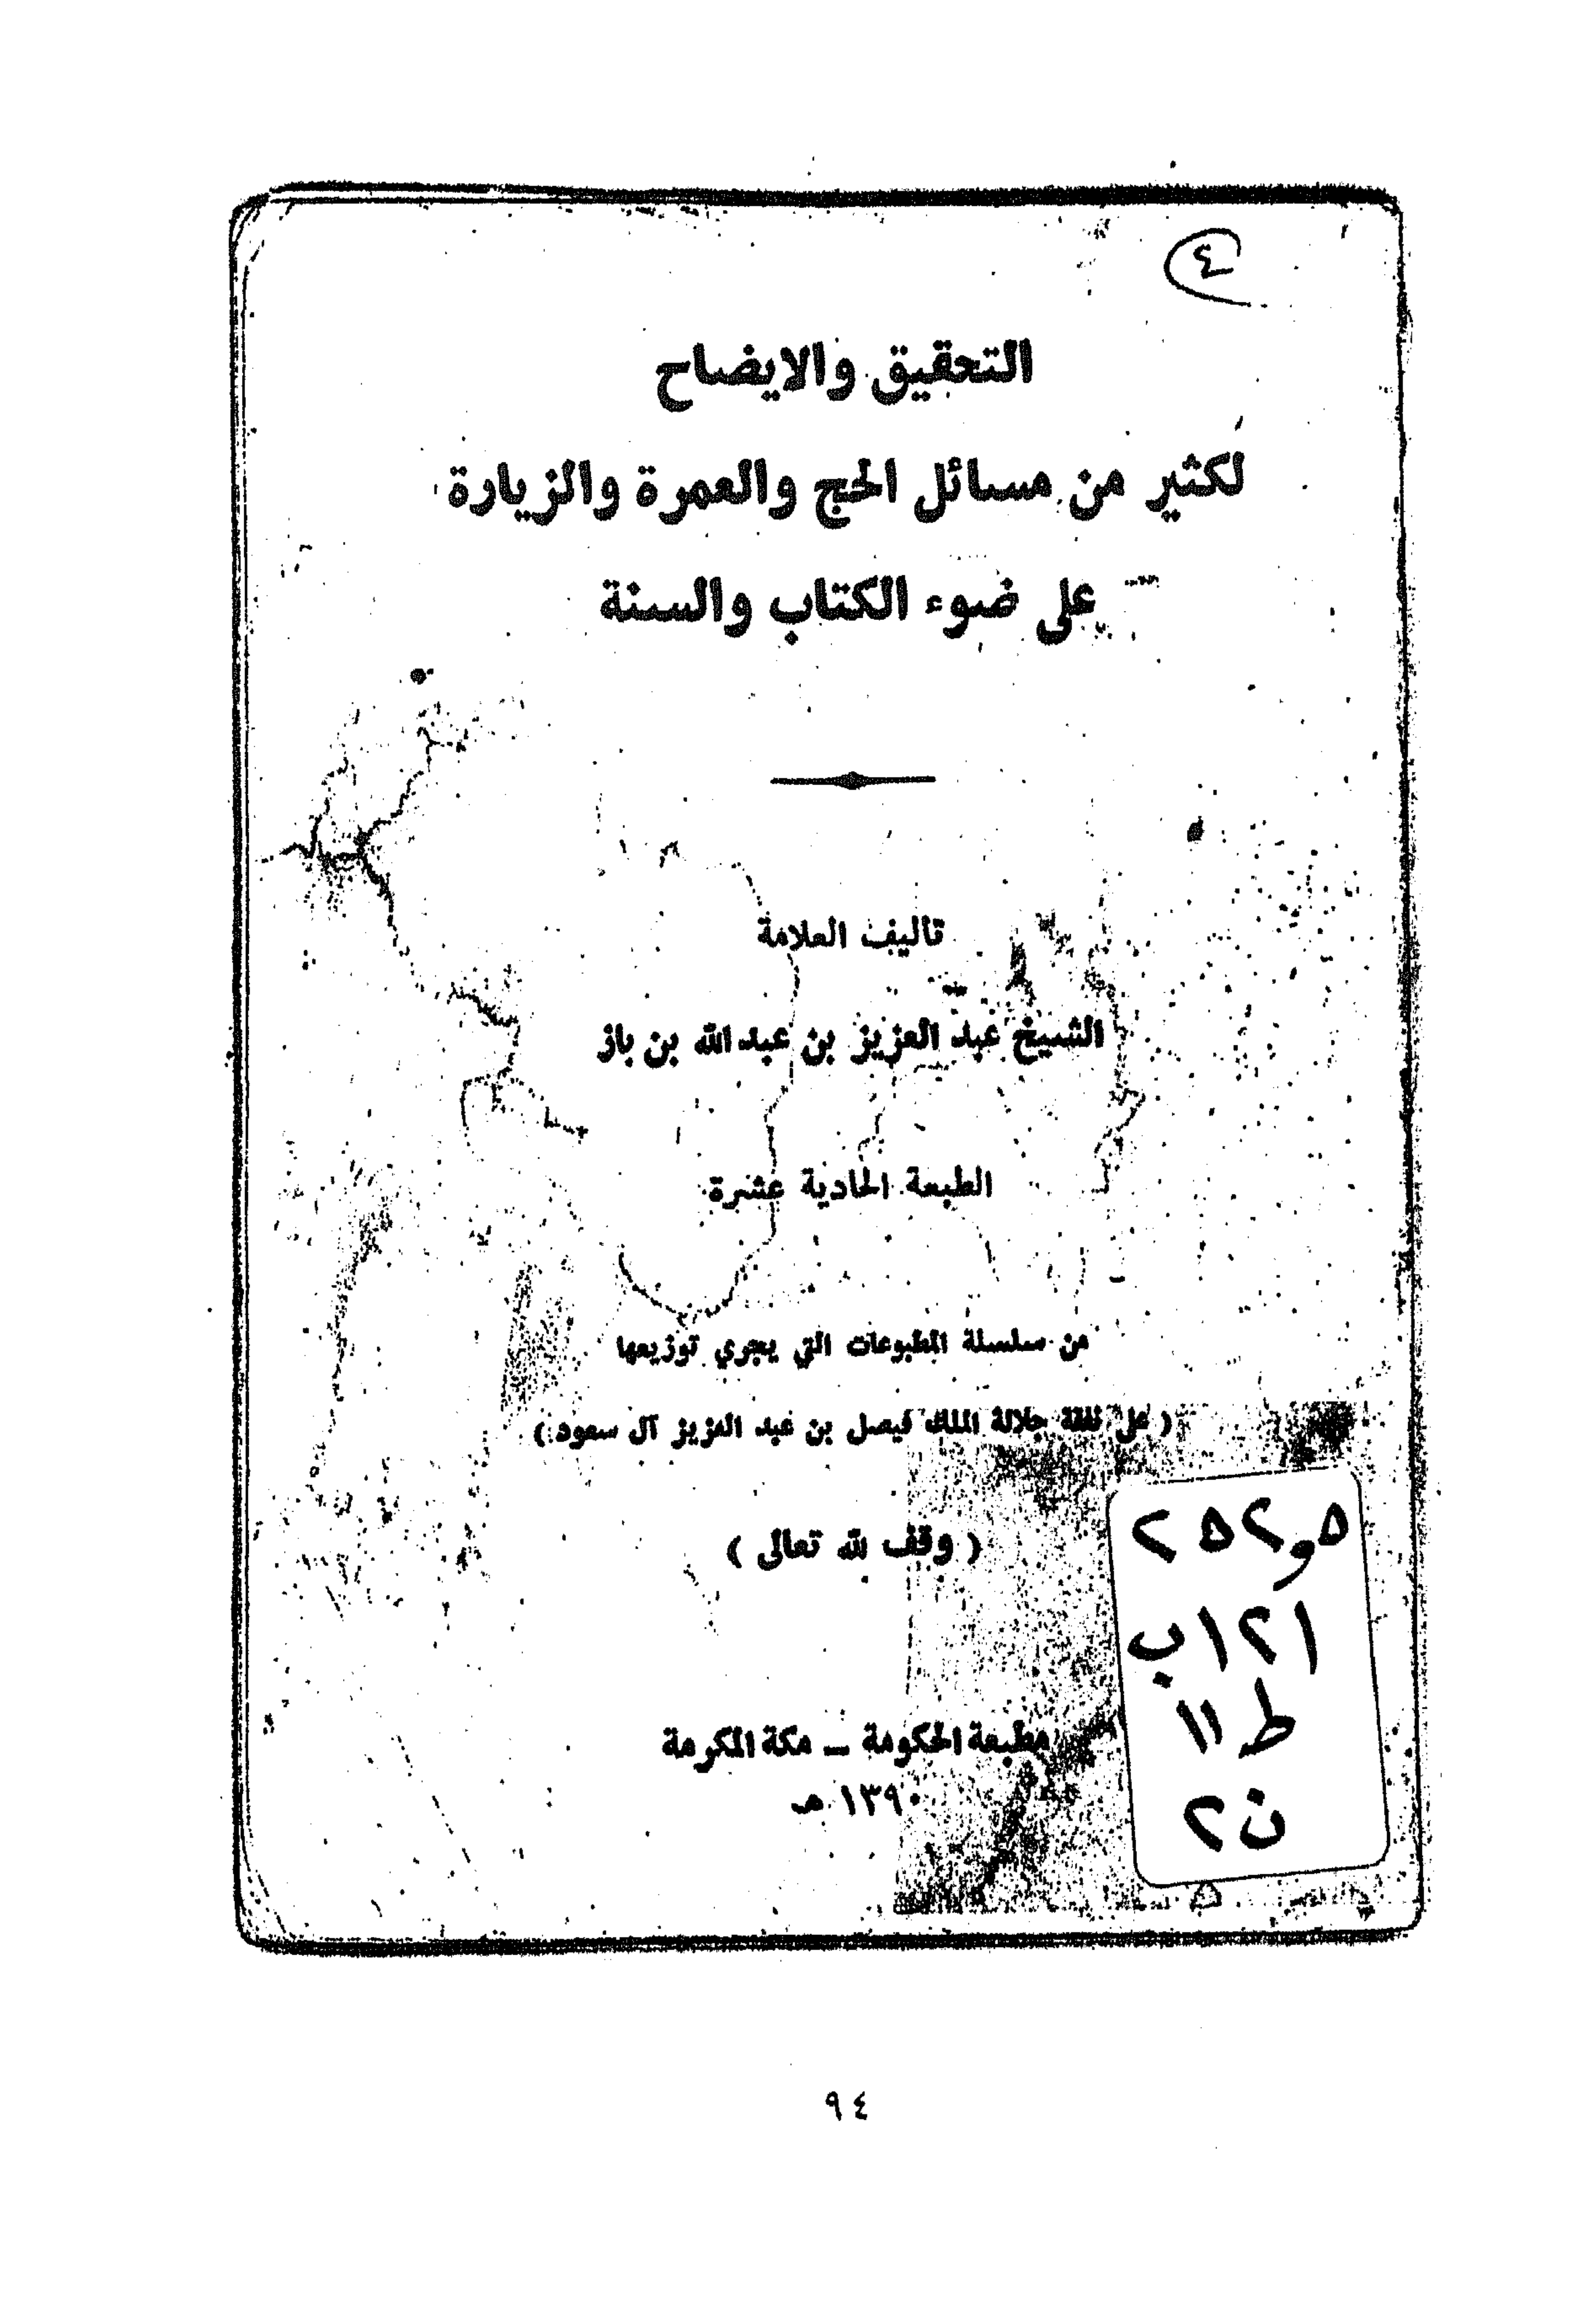 ٤
التحقيق والايضاح
لكثير من مسائل الحج والعمرة والزيارة
على ضوء الكتاب والسنة
تاليف العلامة
الشيخ عبد العزيز بن عبد الله بن باز
الطبعة الحادية عشرة
من سلسلة المطبوعات التي يجري توزيعها
( على نفقة جلالة الملك فيصل بن عبد العزيز آل سعود )
( وقف لله تعالى )
٢٥٢و٥
ب١٢١
ط ١١
ن٢
مطبعة الحكومة – مكة المكرمة
١٣٩٠ هـ
٩٤